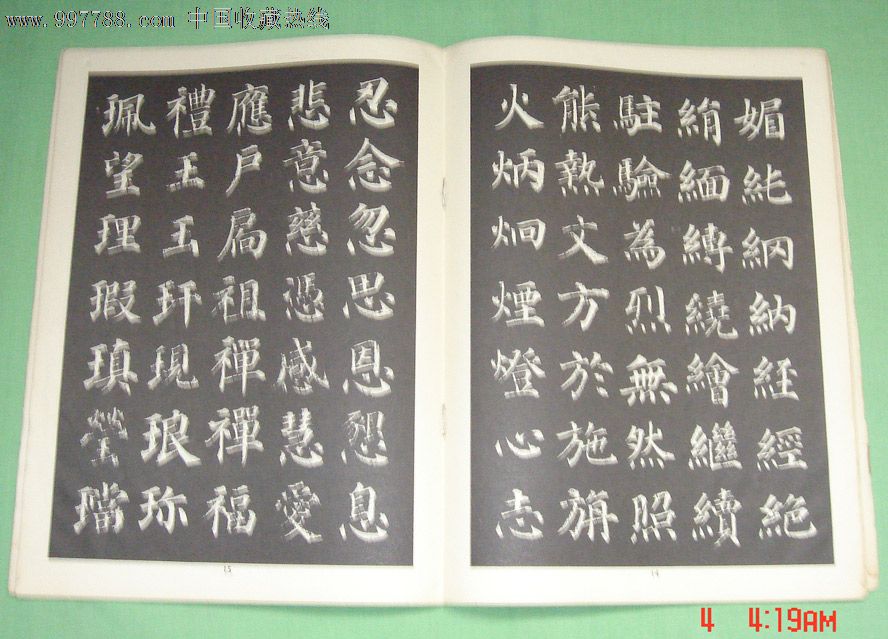 www.997788.com 中国收藏热线
媚納經絶
絹緬縛繞繪繼續
駐驗為烈無然照
熊熱文方於施
火炳炯煙燈心志
忍念忽思恩懇息
悲意慈憑感慧愛
應戶祖禪禪福
禮王玉玕現琅珎
珮望理瑕瑱瑩璫
14
15
4 4:19AM